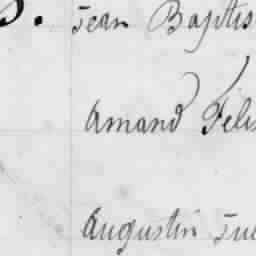 S. Jean Baptis
Amand Felix
Augustin Jul